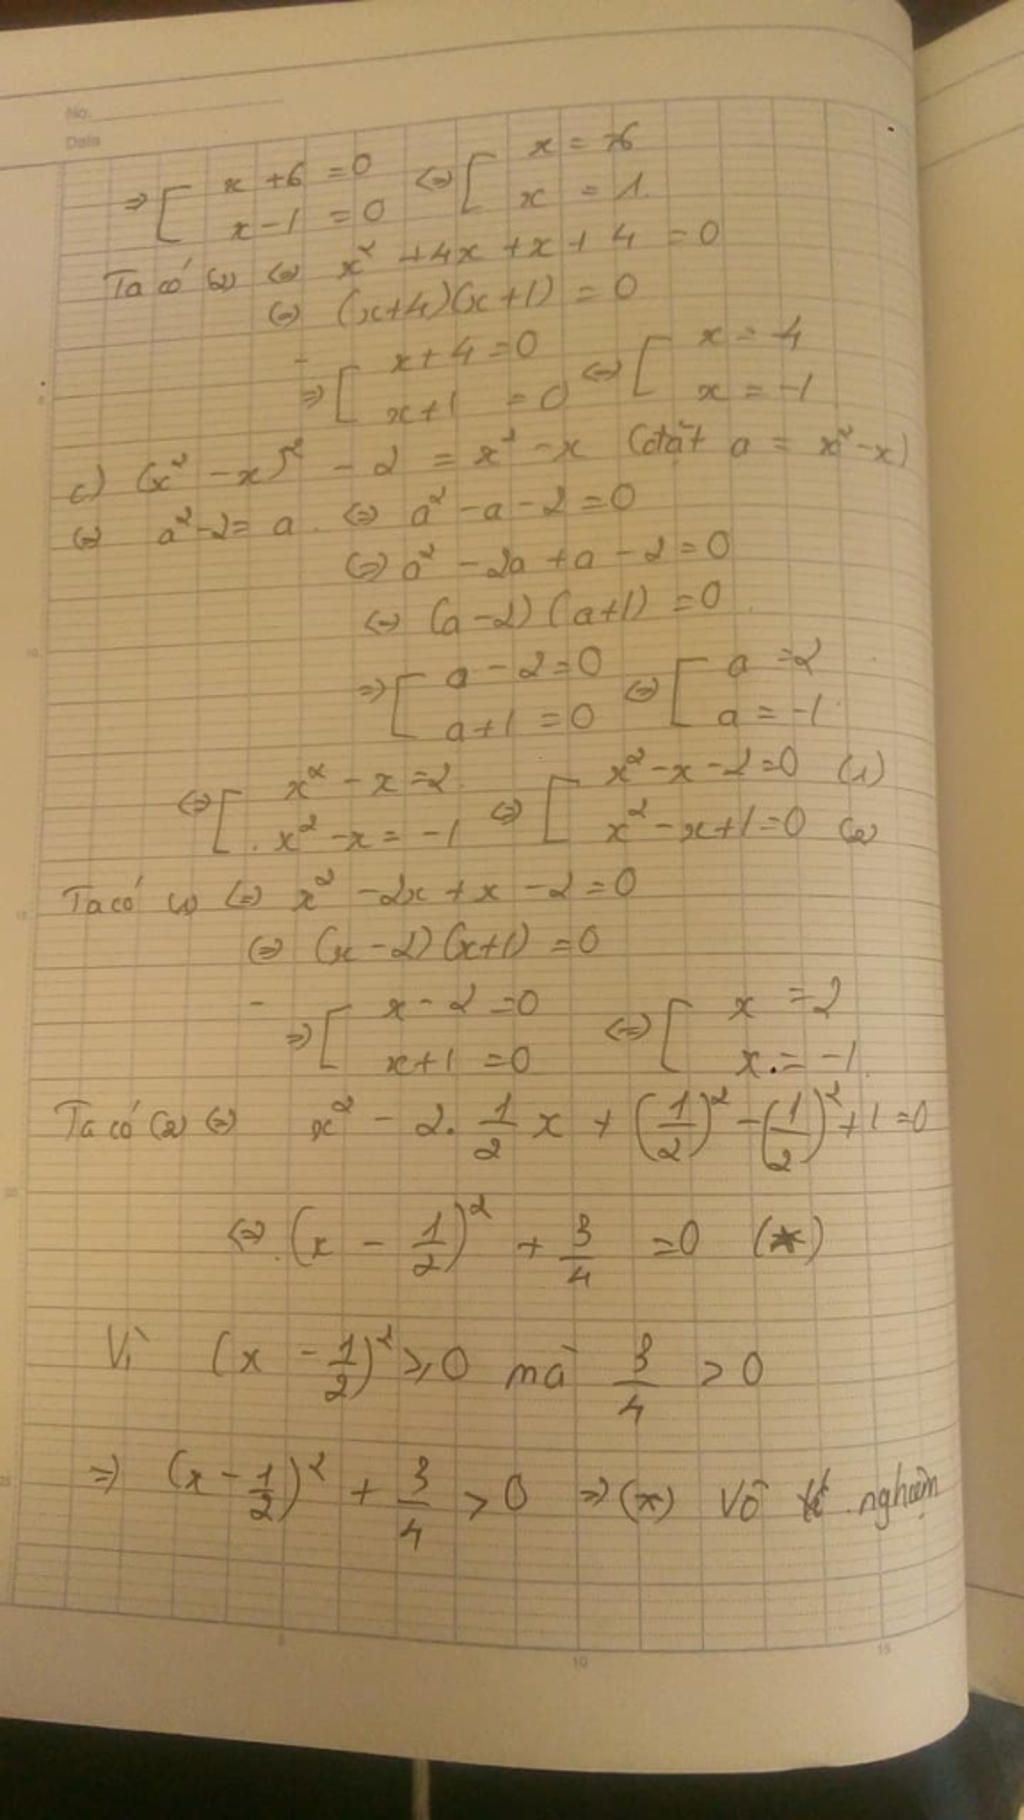 No.
Date
⇒ [ x + 6 = 0 ⇔ [ x = -6
x - 1 = 0 x = 1
Ta có (2) ⇔ x² + 4x + x + 4 = 0
⇔ (x+4)(x+1) = 0
⇒ [ x + 4 = 0 ⇔ [ x = -4
x + 1 = 0 x = -1
c) (x² - x)² - 2 = x² - x (đặt a = x² - x)
⇔ a² - 2 = a ⇔ a² - a - 2 = 0
⇔ a² - 2a + a - 2 = 0
⇔ (a - 2)(a + 1) = 0
⇒ [ a - 2 = 0 ⇔ [ a = 2
a + 1 = 0 a = -1
⇔ [ x² - x = 2 ⇔ [ x² - x - 2 = 0 (1)
x² - x = -1 x² - x + 1 = 0 (2)
Ta có (1) ⇔ x² - 2x + x - 2 = 0
⇔ (x - 2)(x + 1) = 0
⇒ [ x - 2 = 0 ⇔ [ x = 2
x + 1 = 0 x = -1
Ta có (2) ⇔ x² - 2. 1/2 x + (1/2)² - (1/2)² + 1 = 0
⇔ (x - 1/2)² + 3/4 = 0 (*)
Vì (x - 1/2)² ≥ 0 mà 3/4 > 0
⇒ (x - 1/2)² + 3/4 > 0 ⇒ (*) Vô nghiệm
5
10
15
20
25
5
10
15